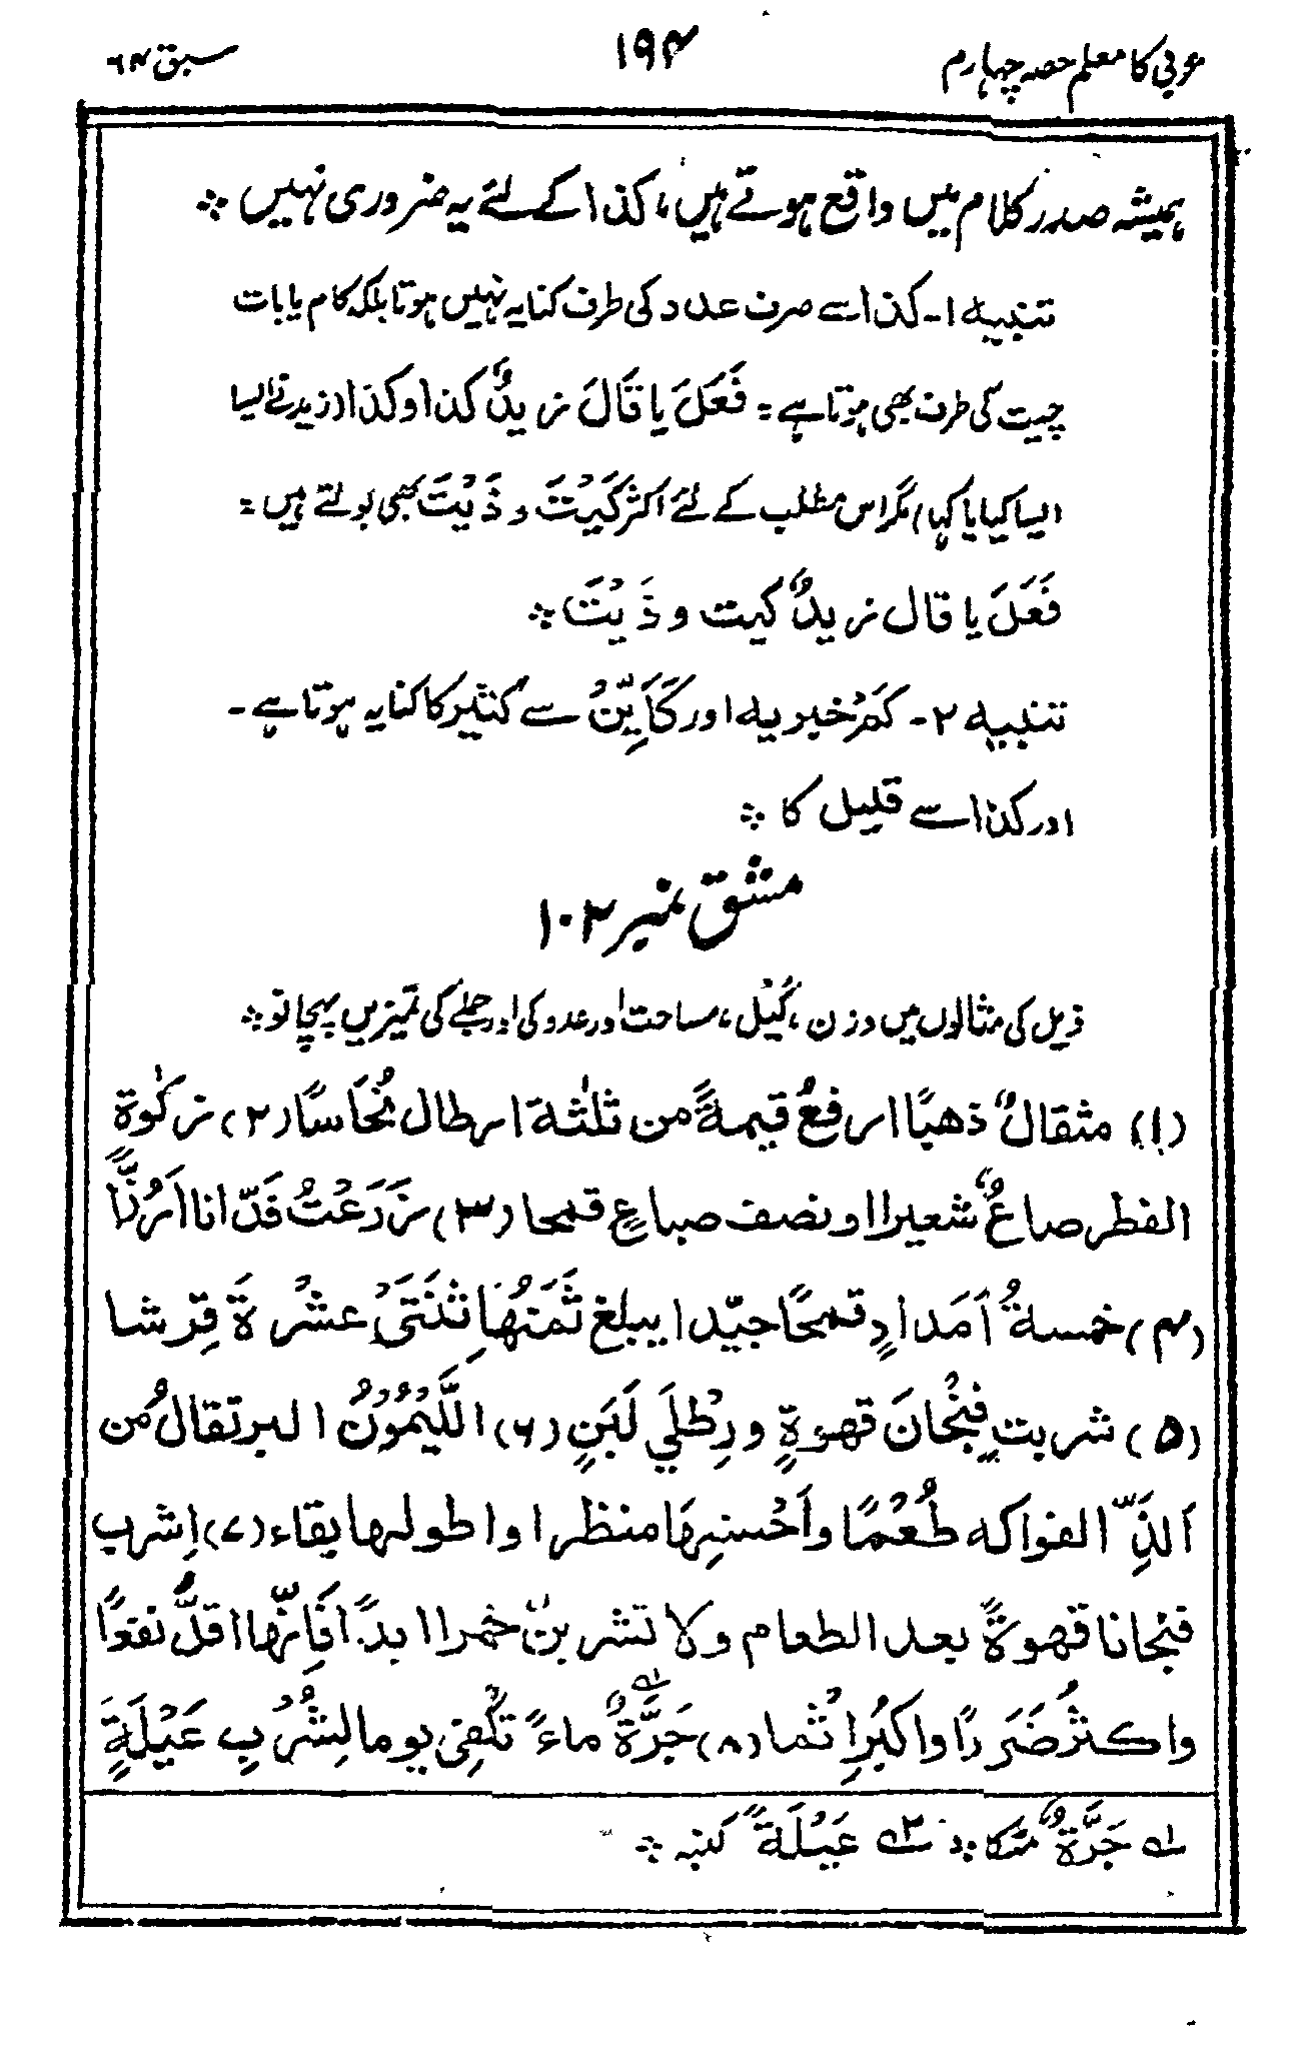 عربی کا معلم حصہ چہارم ۱۹۴ سبق ۶۴
ہمیشہ صدر کلام میں واقع ہوتے ہیں، کذا کے لئے یہ ضروری نہیں ؞
تنبیہ ۱۔ کذا سے صرف عدد کی طرف کنایہ نہیں ہوتا بلکہ کام یا بات
چیت کی طرف بھی ہوتا ہے : فَعَلَ یا قَالَ زیدٌ کذا وکذا (زید نے ایسا
ایسا کیا یا کہا) مگر اس مطلب کے لئے اکثر کَیْتَ و ذَیْتَ بھی بولتے ہیں :
فَعَلَ یا قال زیدٌ کیت و ذَیْتَ ؞
تنبیہ ۲۔ کَمْ خبریہ اور کَأَیِّنْ سے کثیر کا کنایہ ہوتا ہے۔
اور کذا سے قلیل کا ؞
مشق نمبر ۱۰۲
ذیل کی مثالوں میں وزن، کَیْل، مساحت اور عدد کی اور جملے کی تمیزیں پہچانو ؞
(۱) مثقالٌ ذھبًا ارفعُ قیمةً من ثلٰثة ارطال نُحَاسًا (۲) زکٰوةِ
الفطر صاعٌ شعیرا او نصف صاعٍ قمحا (۳) زَرَعْتُ فَدّانا اَرُزًّا
(۴) خمسةُ اَمَدادٍ قمحًا جیّدا یبلغ ثَمَنُهَا ثِنَتَیْ عشْرةَ قِرشا
(۵) شربت فِنْجَانَ قهوةٍ ورِطْلَي لَبَنٍ (۶) اللَّیْمُوْنُ البرتقالُ من
اَلذِّ الفواکه طُعْمًا واَحْسنِهَا منظرا واطولها بقاء (۷) اِشرب
فنجانا قهوةً بعد الطعام ولا تشربنْ خمرا ابدًا فَاِنّها اقلُّ نفعًا
واکثرُ ضَرَرًا واکبرُ اِثما (۸) جَرَّةٌ ماءً تکْفِیْ یوما لِشُرْبِ عَیْلَةٍ
؂۱ جَرَّةٌ مٹکا ؞ ؂۲ عَیْلَةً کنبہ ؞